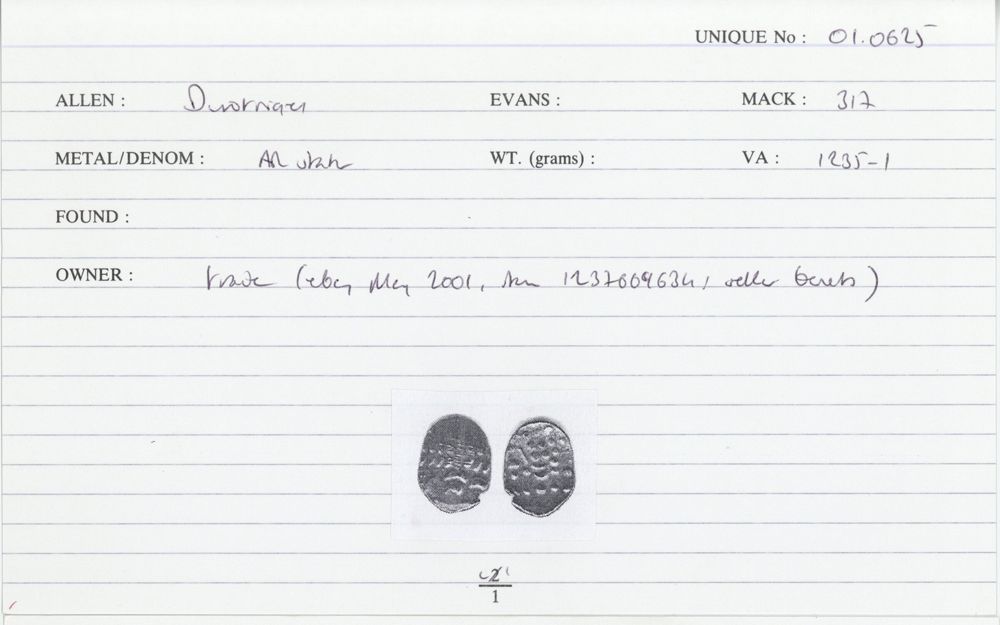 UNIQUE No : 01.0625
ALLEN : Durotriges EVANS : MACK : 317
METAL/DENOM : AR stater WT. (grams) : VA : 1235-1
FOUND :
OWNER : trade (ebay May 2001, item 1237609634, seller)
1